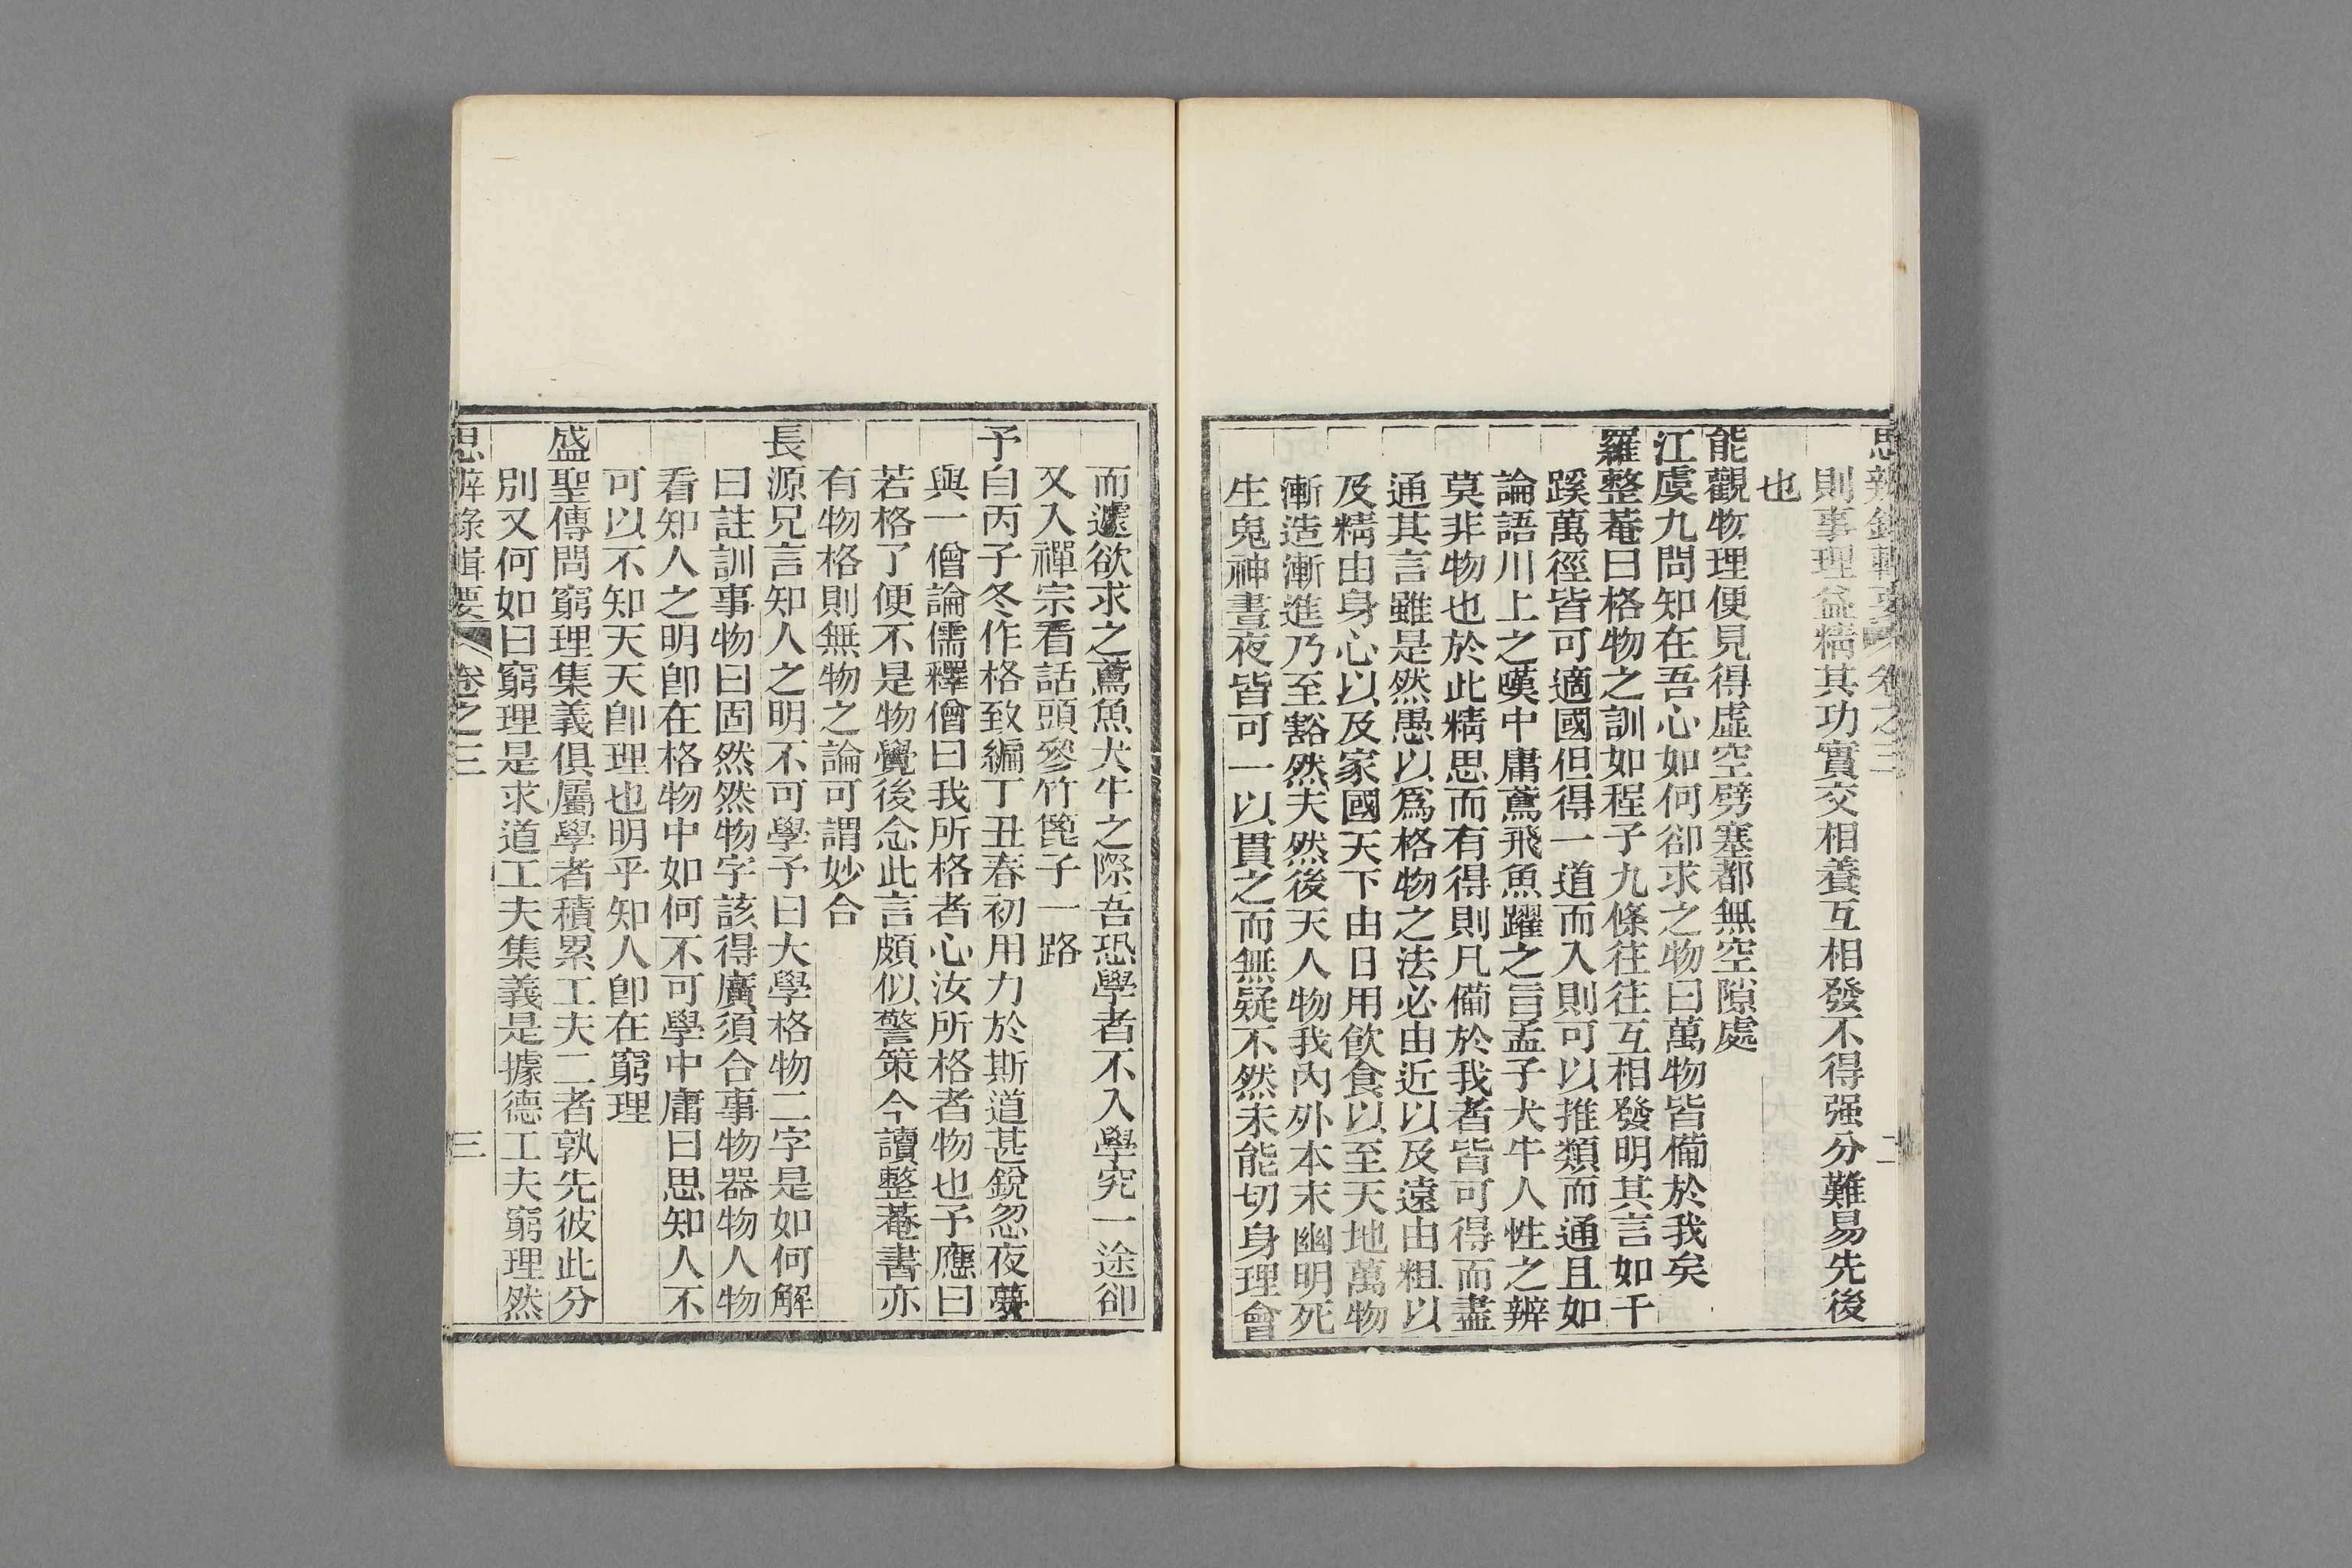 思辨錄輯要 卷之三 二
則事理益精其功實交相養互相發不得强分難易先後
也
能觀物理便見得虛空劈塞都無空隙處
江虞九問知在吾心如何卻求之物曰萬物皆備於我矣
羅整菴曰格物之訓如程子九條往往互相發明其言如千
蹊萬徑皆可適國但得一道而入則可以推類而通且如
論語川上之嘆中庸鳶飛魚躍之言孟子犬牛人性之辨
莫非物也於此精思而有得則凡備於我者皆可得而盡
通其言雖是然愚以爲格物之法必由近以及遠由粗以
及精由身心以及家國天下由日用飲食以至天地萬物
漸造漸進乃至豁然夫然後天人物我內外本末幽明死
生鬼神晝夜皆可一以貫之而無疑不然未能切身理會
而遽欲求之鳶魚犬牛之際吾恐學者不入學究一途卻
又入禪宗看話頭參竹篦子一路
予自丙子冬作格致編丁丑春初用力於斯道甚銳忽夜夢
與一僧論儒釋僧曰我所格者心汝所格者物也予應曰
若格了便不是物覺後念此言頗似警策今讀整菴書亦
有物格則無物之論可謂妙合
長源兄言知人之明不可學予曰大學格物二字是如何解
曰註訓事物曰固然然物字該得廣須合事物器物人物
看知人之明卽在格物中如何不可學中庸曰思知人不
可以不知天天卽理也明乎知人卽在窮理
盛聖傳問窮理集義俱屬學者積累工夫二者孰先彼此分
別又何如曰窮理是求道工夫集義是據德工夫窮理然
思辨錄輯要 卷之三 三